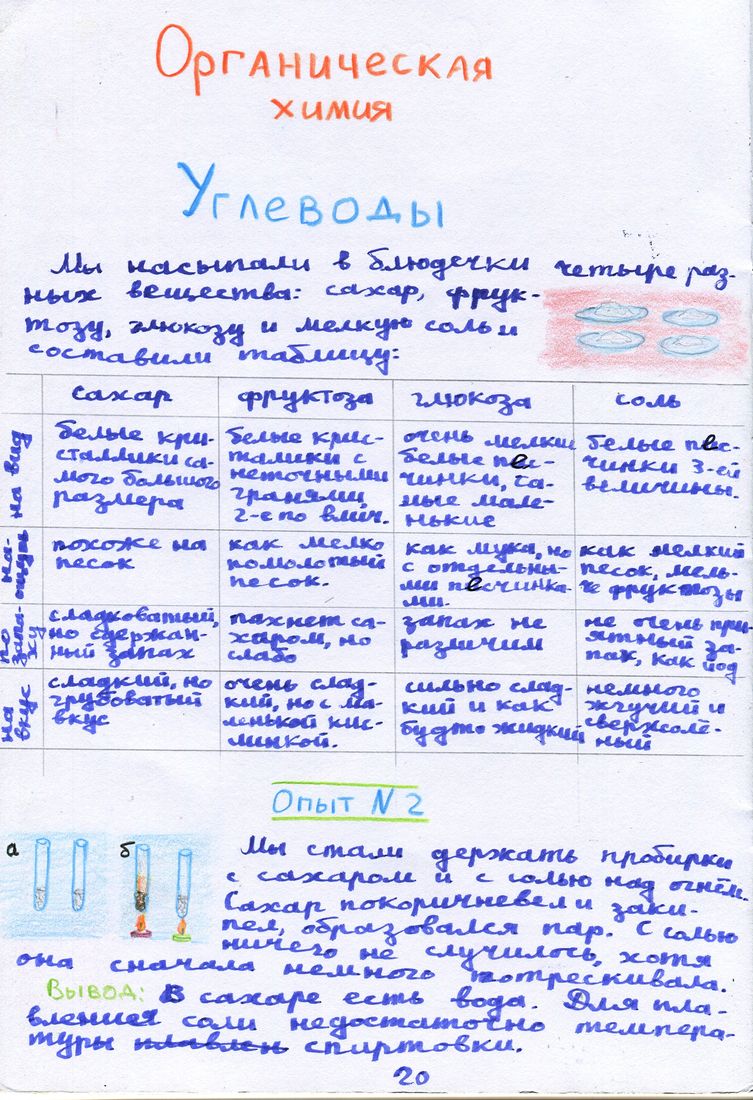 Органическая
химия
Углеводы
Мы насыпали в блюдечки четыре раз-
ных вещества: сахар, фрук-
тозу, глюкозу и мелкую соль и
составили таблицу:
сахар фруктоза глюкоза соль
на вид
белые кри-
сталлики са-
мого большого
размера
белые крис-
талики с
неточными
гранями
2-е по влич.
очень мелкие
белые пес-
чинки, са-
мые мале-
нькие
белые пес-
чинки 3-ей
величины.
на-
ощупь
похоже на
песок
как мелко
помолотый
песок.
как мука, но
с отдельны-
ми песчинка-
ми.
как мелкий
песок, мель-
че фруктозы
по
запа-
ху
сладковатый,
но сдержан-
ный запах
пахнет са-
харом, но
слабо
запах не
различим
не очень при-
ятный за-
пах, как йод
на
вкус
сладкий, но
грубоватый
вкус
очень слад-
кий, но с ма-
ленькой кис-
линкой.
сильно слад-
кий и как
будто жидкий
немного
жгучий и
сверхсолё-
ный
Опыт N 2
а
б
Мы стали держать пробирки
с сахаром и с солью над огнём.
Сахар покоричневел и заки-
пел, образовался пар. С солью
ничего не случилось, хотя
она сначала немного потрескивала.
Вывод: В сахаре есть вода. Для пла-
вления соли недостаточно темпера-
туры плавлен спиртовки.
20